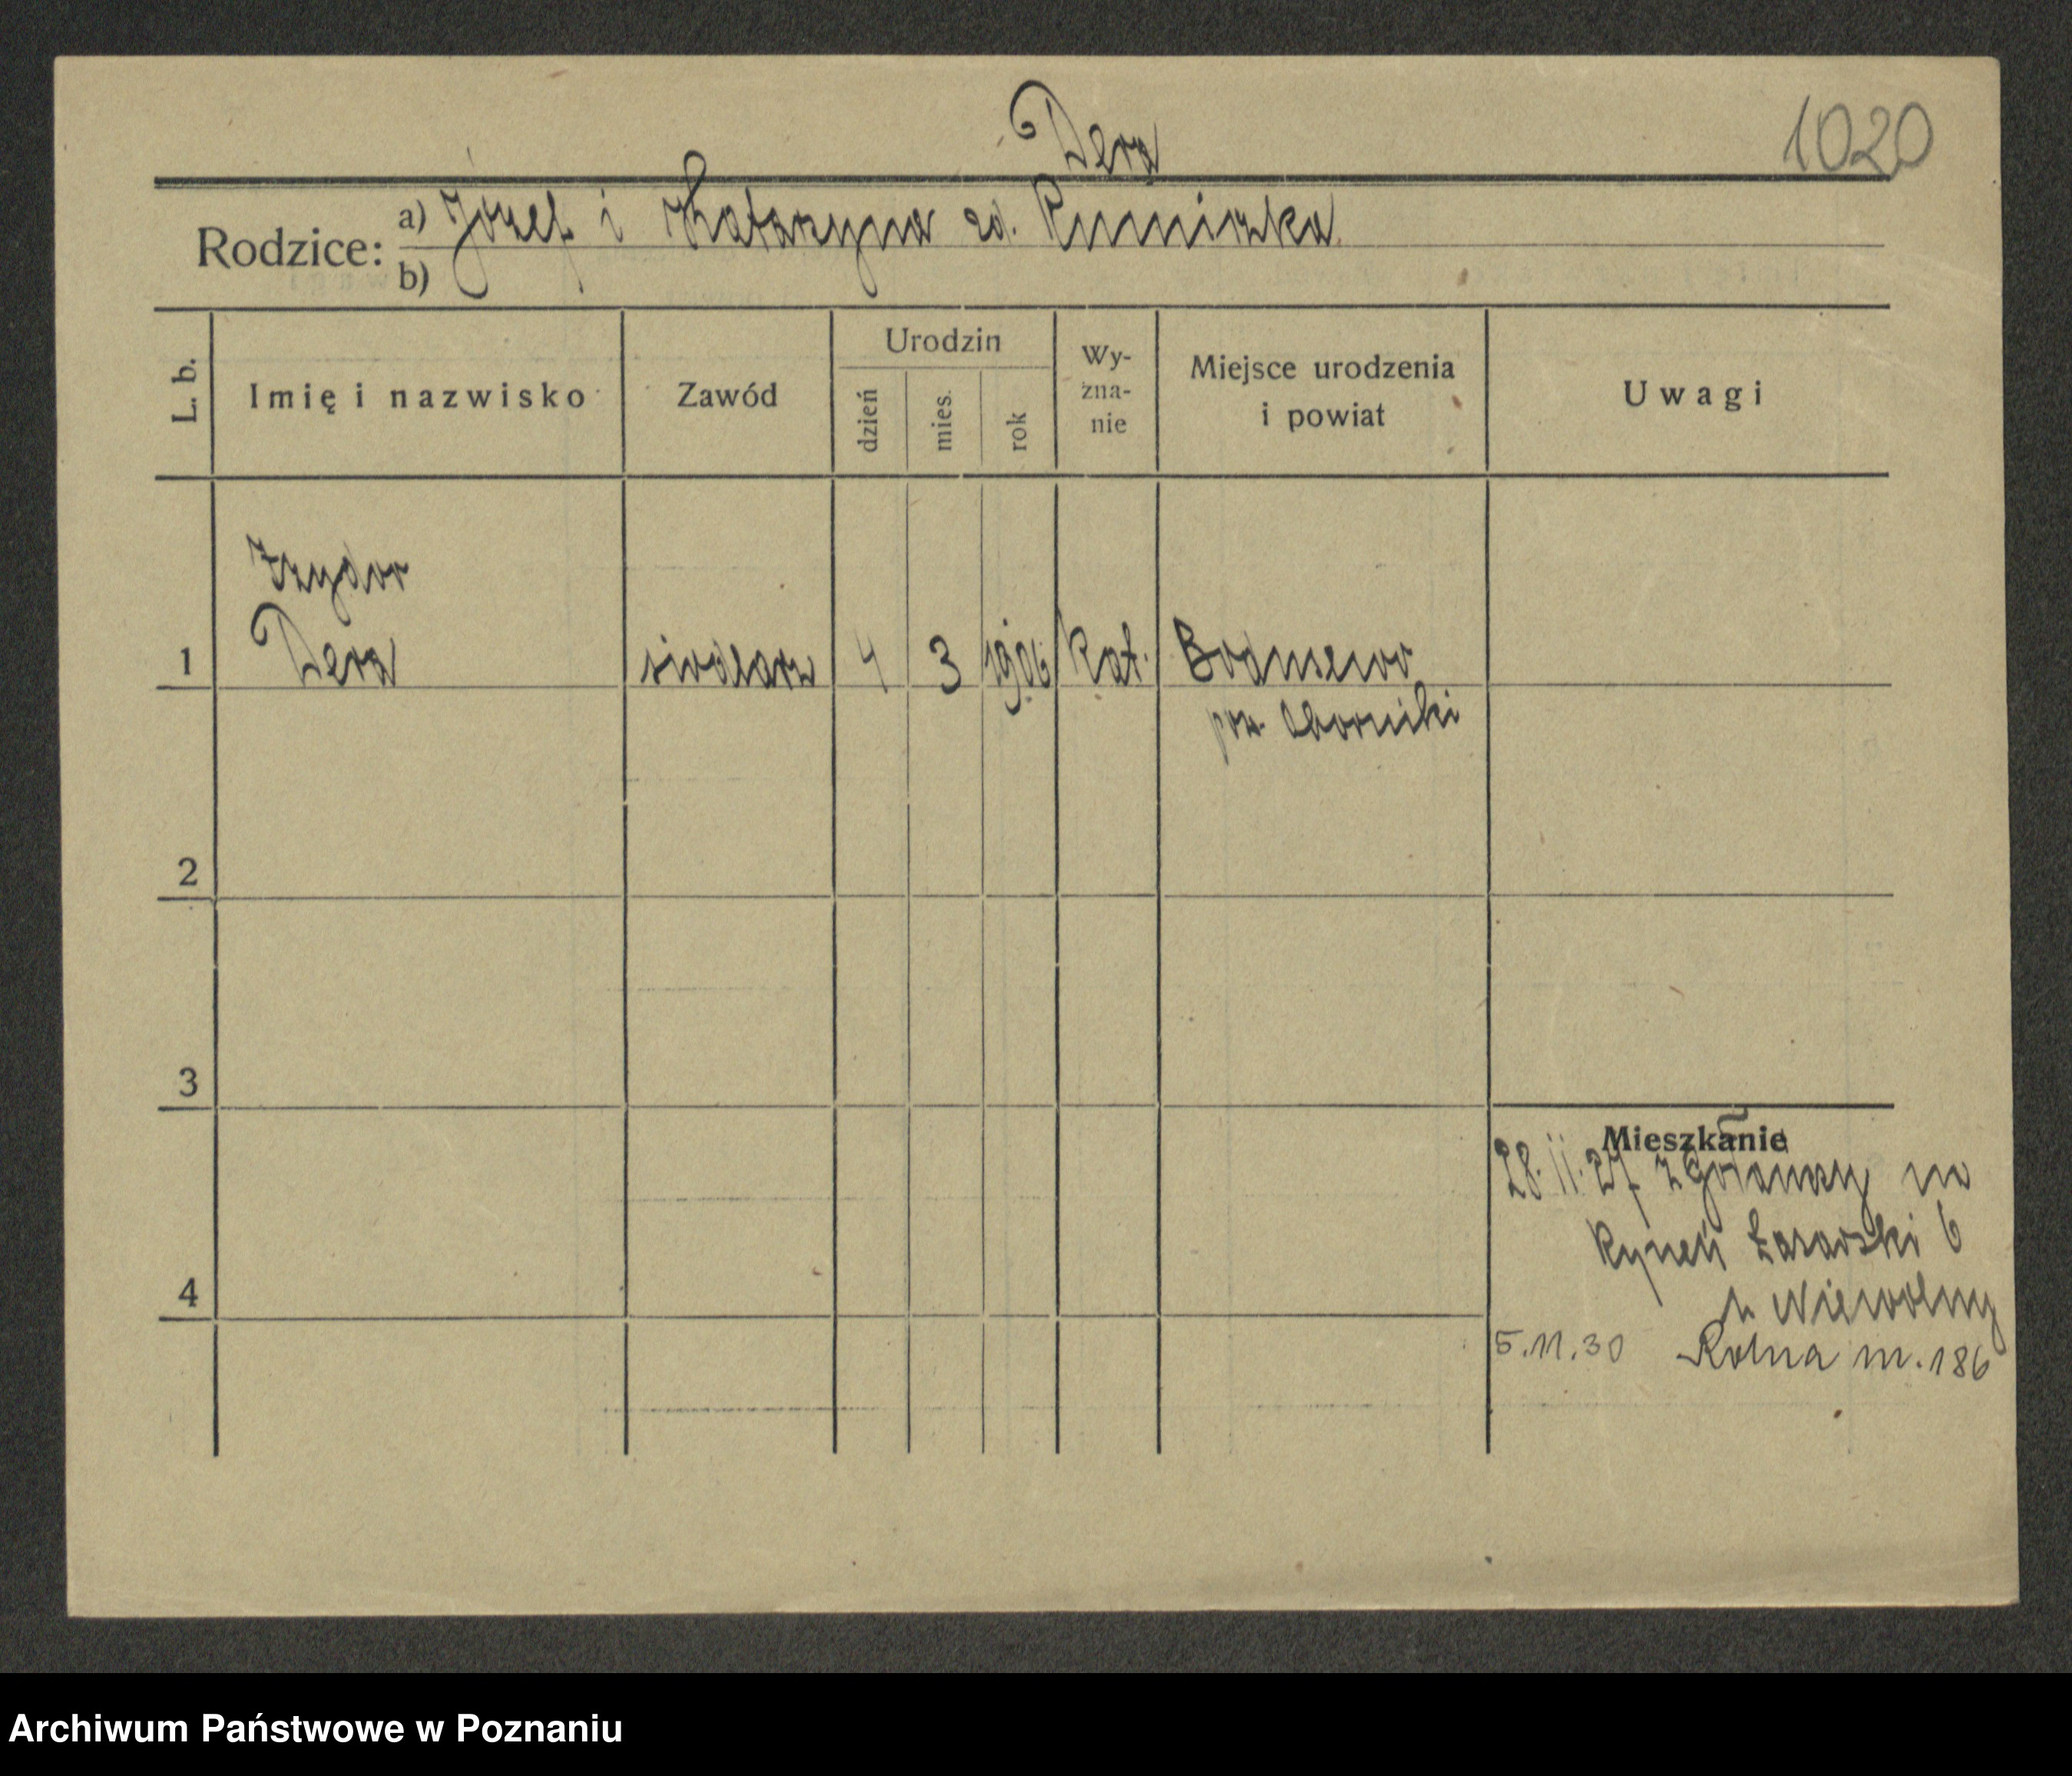 Dera
1020
Rodzice: a) Józef i Katarzyna zd.
b)
L. b.
Imię i nazwisko
Zawód
Urodzin
dzień
mies.
rok
Wy-
zna-
nie
Miejsce urodzenia
i powiat
Uwagi
Izydor
1 Dera siodlarz 4 3 1906 kat. Bodusewo
pow. Oborniki
2
3
4
Mieszkanie
28.11.27 z Gołańczy na
Rynek Łazarski 6
u Niewolny
5.11.30 Rolna m. 186
Archiwum Państwowe w Poznaniu